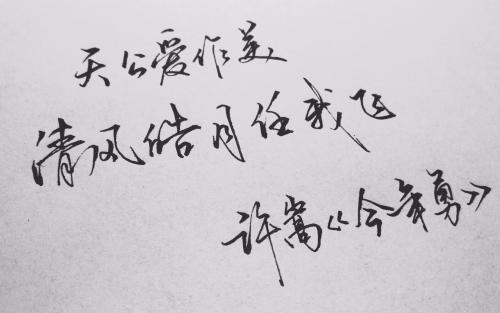 天公爱作美
清风皓月任我飞
许嵩《今年勇》